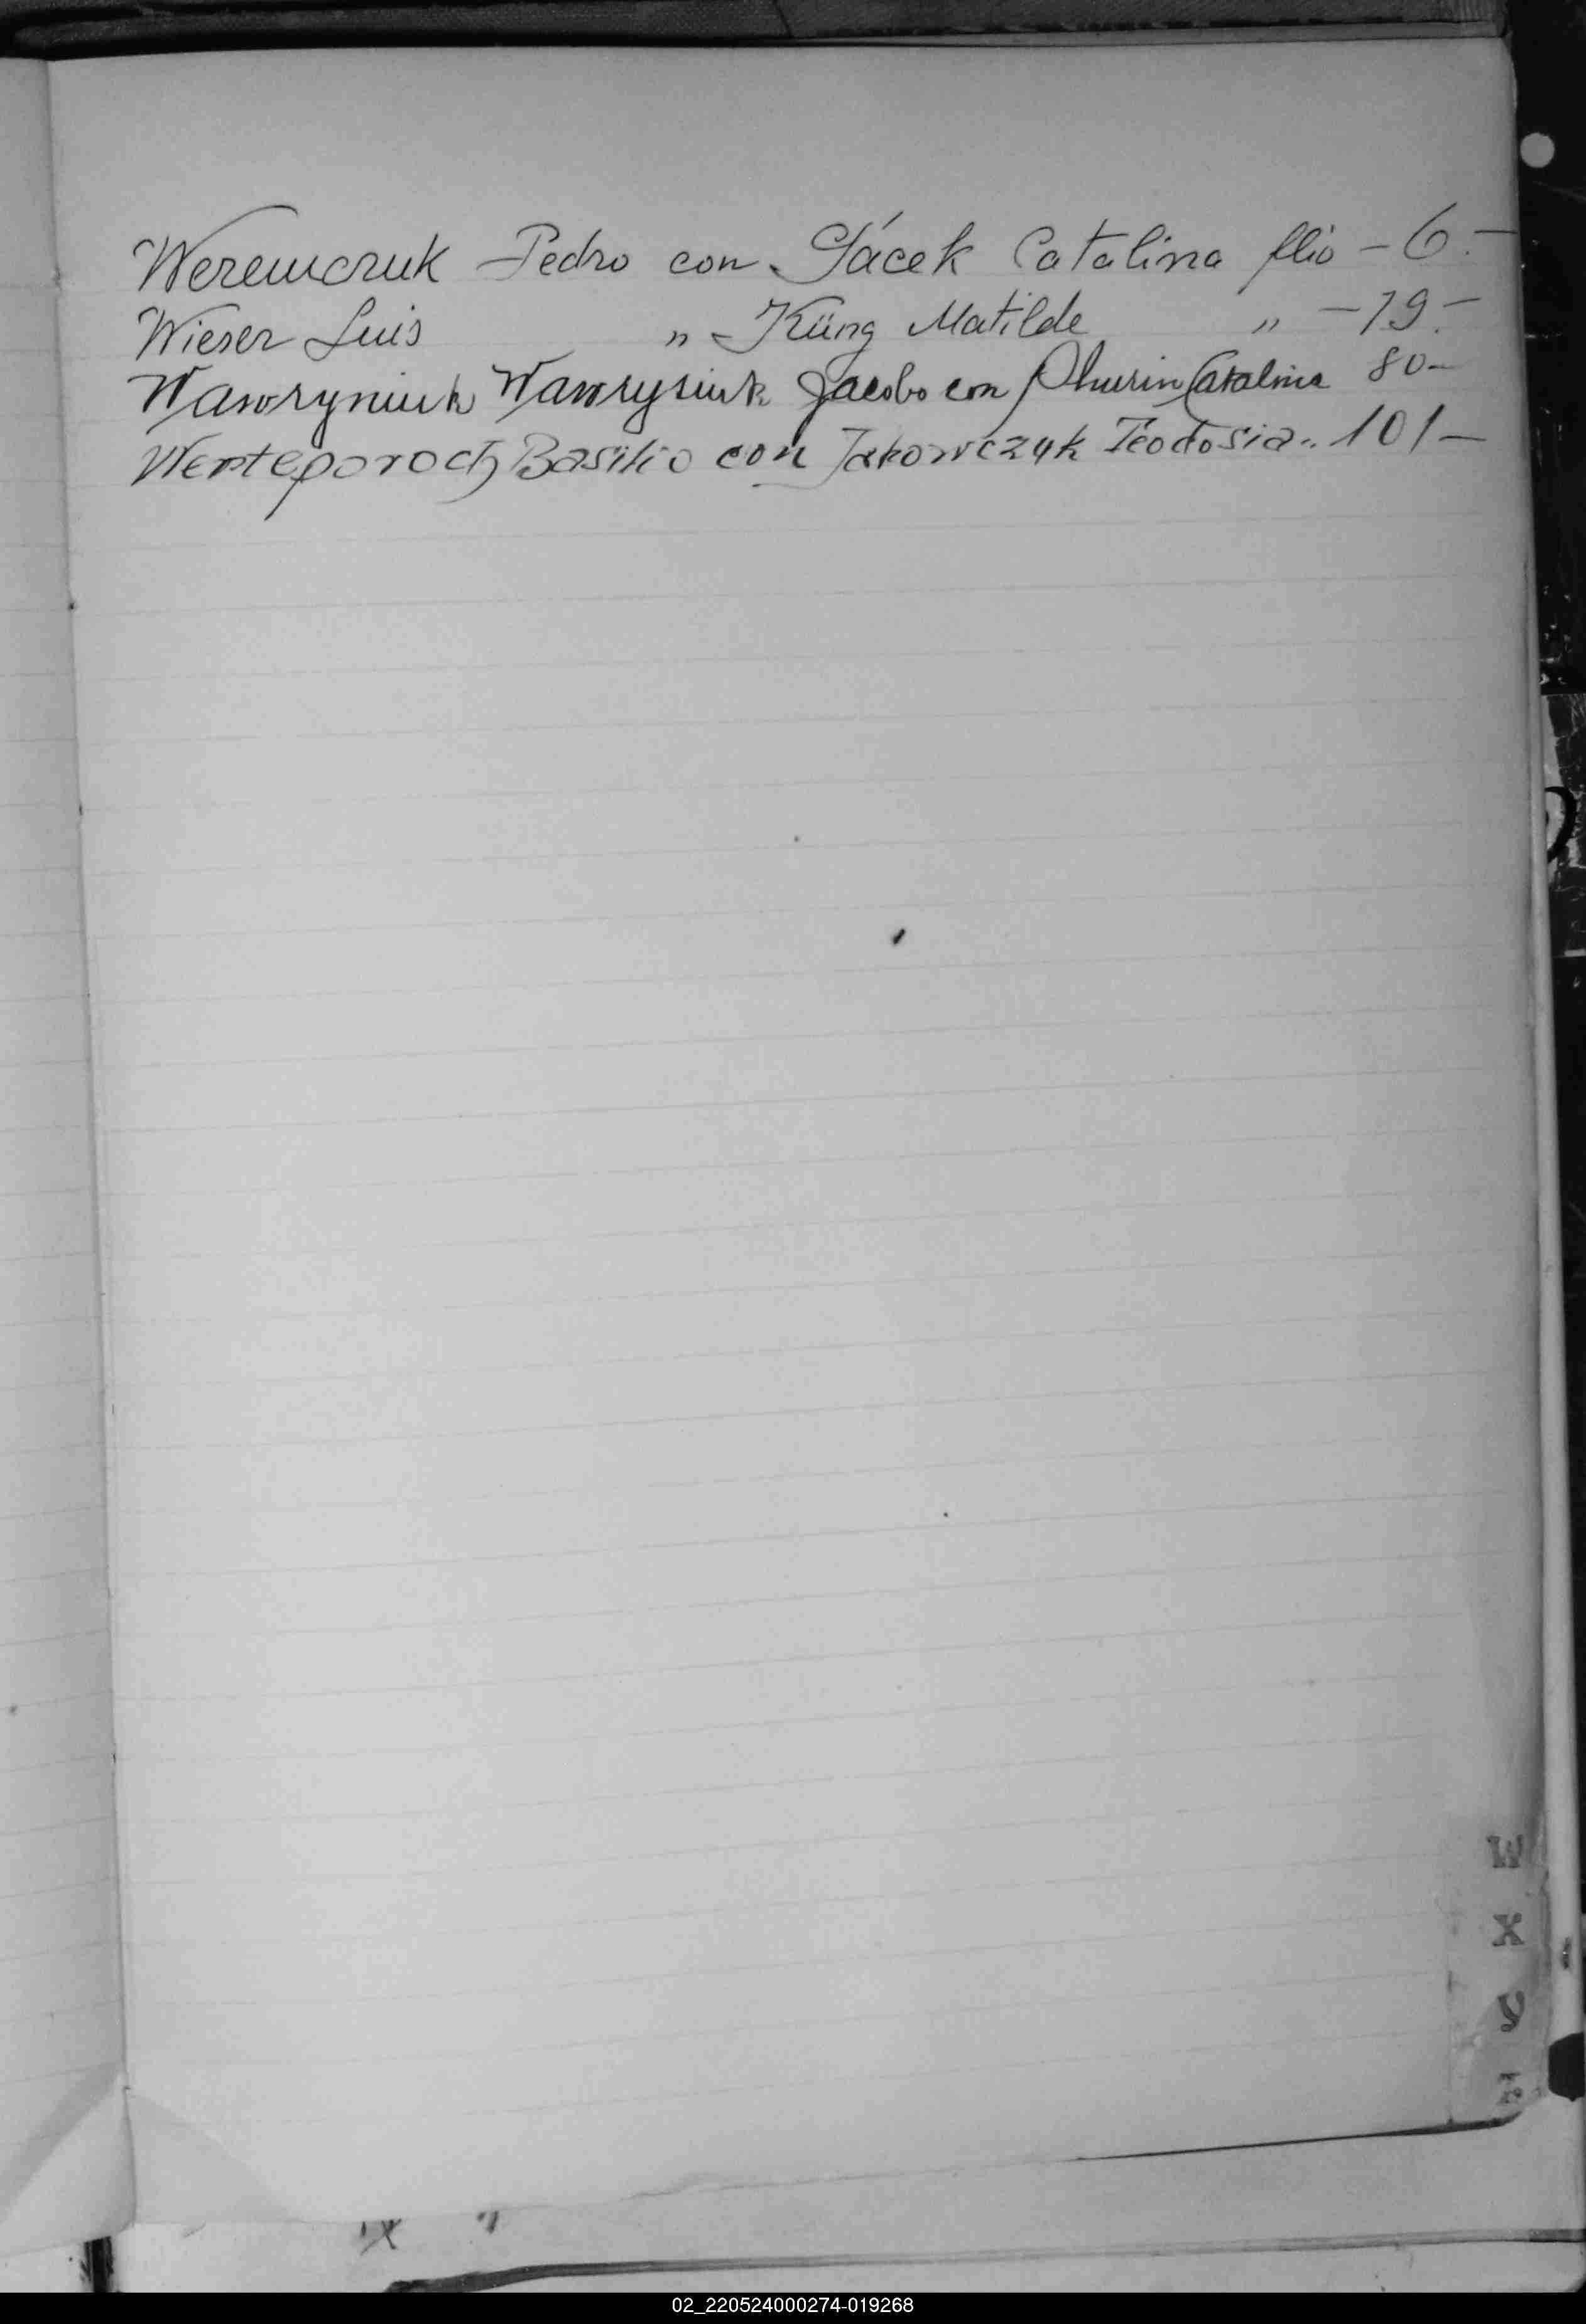 Weremczuk Pedro con Gácek Catalina flio - 6. -
Wieser Luis „ - Küng Matilde „ - 19. -
Wawryniuk Wawryniuk Jacobo con Catalina 80-
Werteporoch Basilio con Jakowczuk Teodosia „ 101-
W
X
Y
Z
02_220524000274-019268